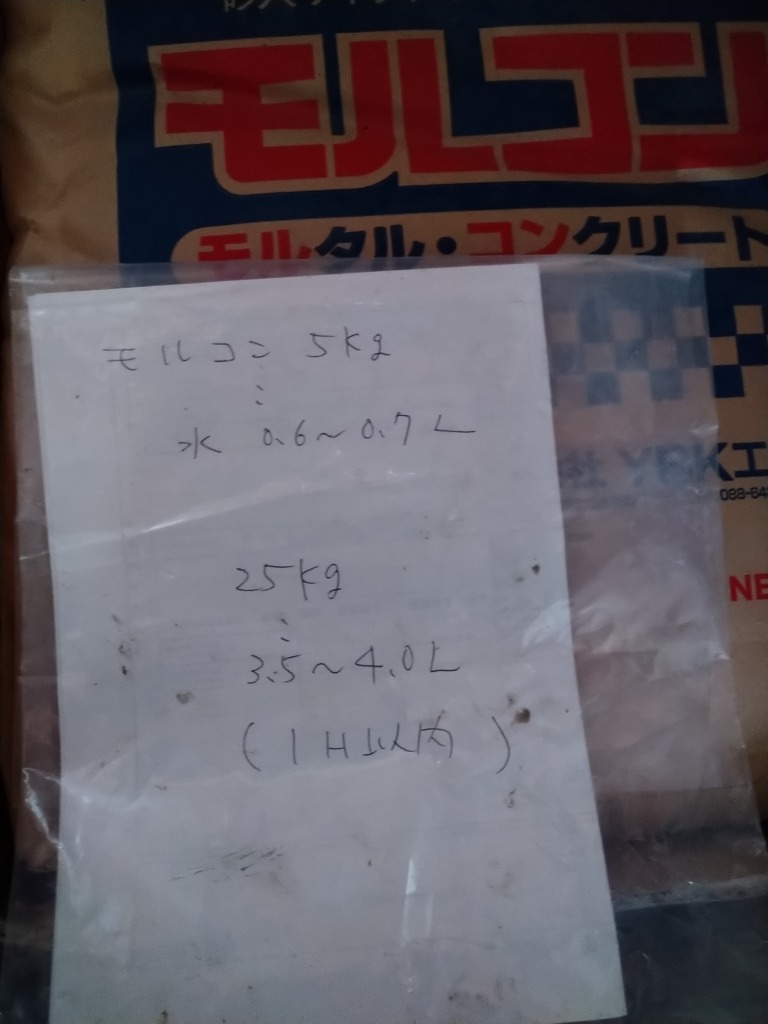 モルコン
モルタル・コンクリート
モルコン 5kg
⋮
水 0.6~0.7L
25kg
⋮
3.5~4.0L
(1H以内)
社
088-64
NE